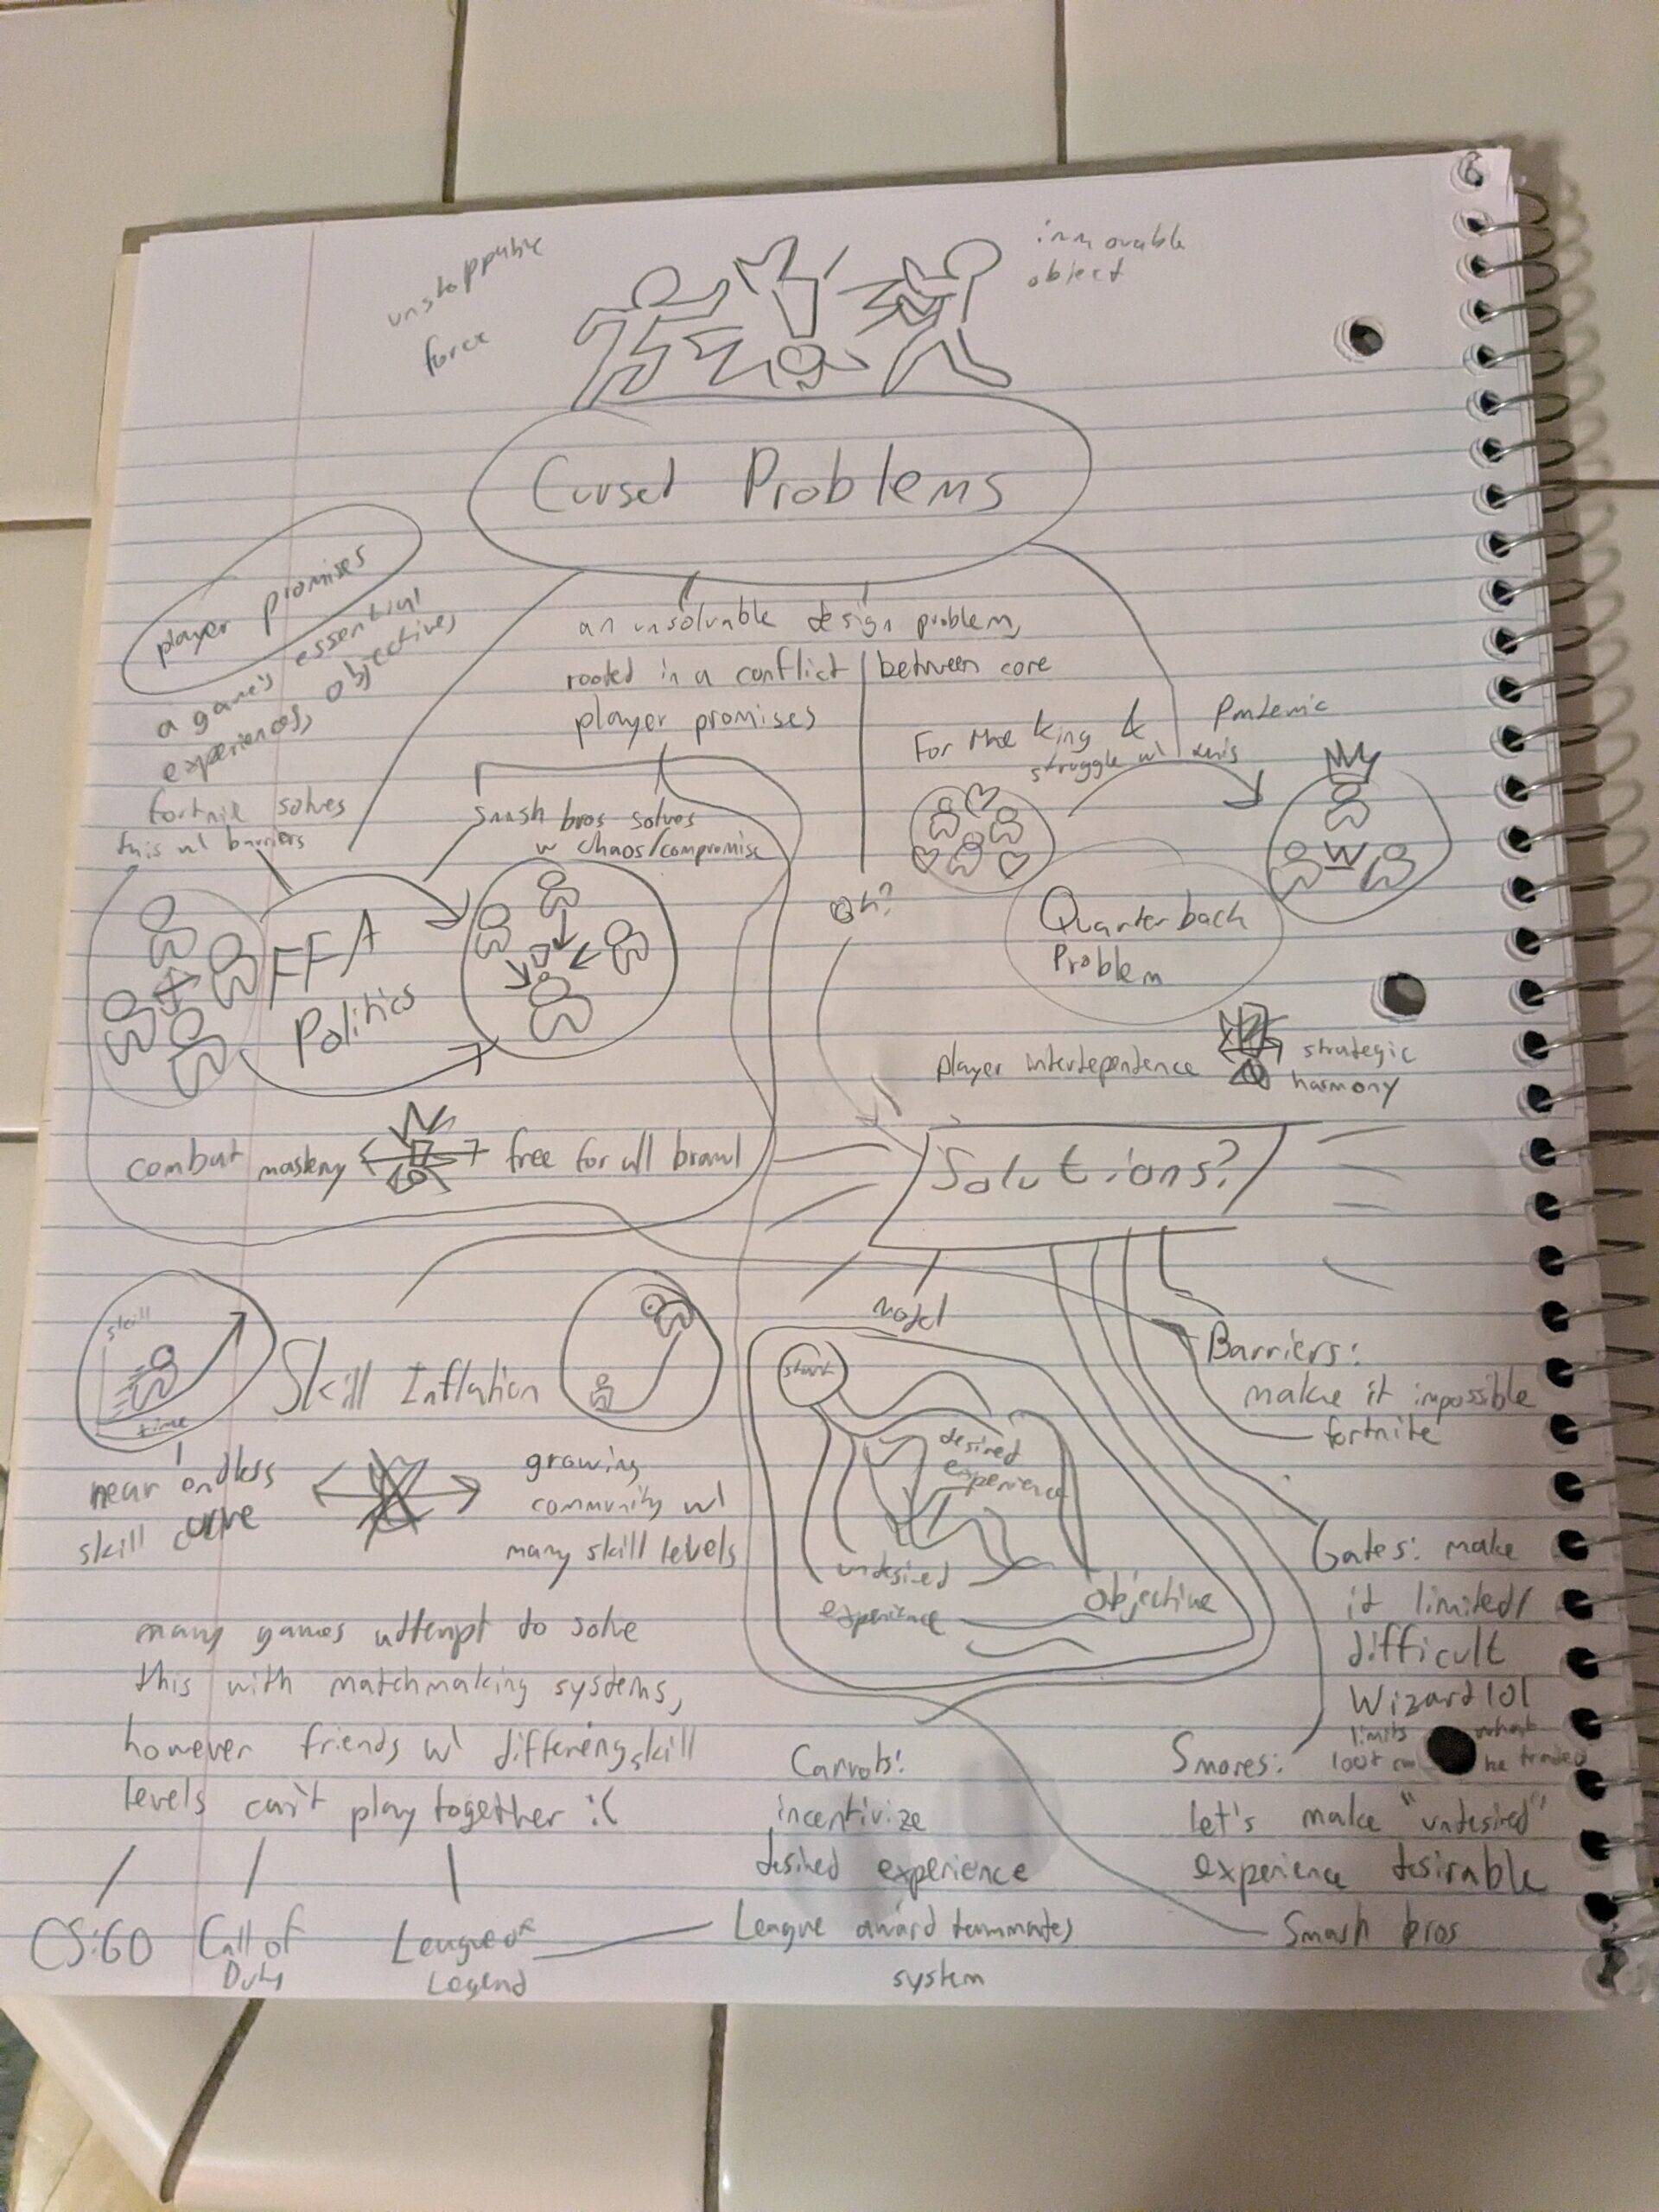 unstoppable
force
immovable
object
Cursed Problems
player promises
a game's essential
experiences, objectives
an unsolvable design problem,
rooted in a conflict between core
player promises
For the King & Pandemic
struggle w/ this
fortnite solves
this w/ barriers
smash bros solves
w chaos/compromise
FFA
Politics
oh?
Quarterback
Problem
player interdependence
strategic
harmony
combat mastery
free for all brawl
Solutions?
skill
time
Skill Inflation
near endless
skill curve
growing
community w/
many skill levels
many games attempt to solve
this with matchmaking systems,
however friends w/ differing skill
levels can't play together :(
CS:GO
Call of
Duty
League of
Legend
model
start
desired
experience
undesired
experience
objective
Barriers:
make it impossible
fortnite
Gates: make
it limited/
difficult
Wizard101
limits what
loot can be traded
Carrots:
incentivize
desired experience
League award teammates
system
Smores:
let's make "undesired"
experience desirable
Smash bros